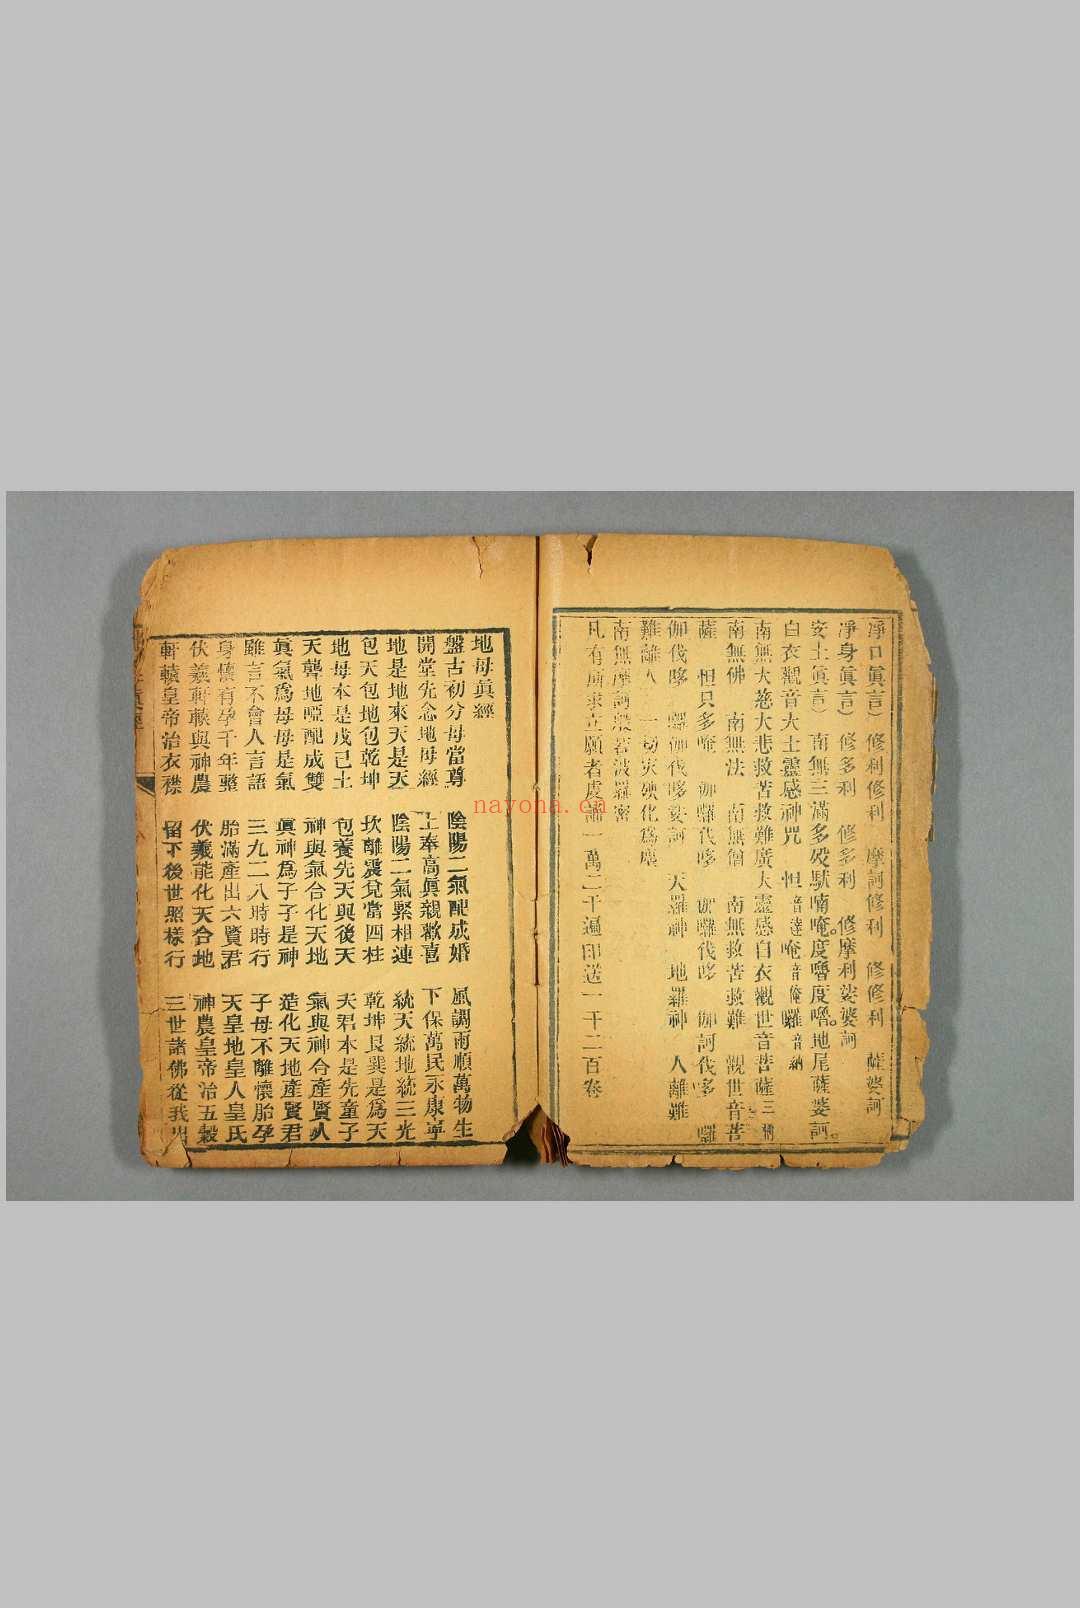 淨口眞言） 修利修利 摩訶修利 修修利 薩婆訶
淨身眞言） 修多利 修多利 修摩利娑婆訶
安土眞言） 南無三滿多 馱喃唵。度嚕度嚕。地尾薩婆訶。
白衣觀音大士靈感神咒 怛音達唵音俺囉音納
南無大慈大悲救苦救難廣大靈感白衣觀世音菩薩三稱
南無佛 南無法 南無僧 南無救苦救難 觀世音菩
薩 怛只多唵 伽囉伐哆 伽囉伐哆 伽訶伐哆 囉
伽伐哆 囉伽伐哆娑訶 天羅神 地羅神 人離難
難離人 一切災殃化爲塵
南無摩訶般若波羅密
凡有所求立願者虔誦一萬二千遍印送一千二百卷
地母眞經
盤古初分母當尊 陰陽二氣配成婚 風調雨順萬物生
開堂先念地母經 上奉高眞親歡喜 下保萬民永康寧
地是地來天是天 陰陽二氣緊相連 統天統地統三光
包天包地包乾坤 坎離震兌當四柱 乾坤艮巽是爲天
地母本是戊己土 包養先天與後天 天君本是先童子
天聾地啞配成雙 神與氣合化天地 氣與神合產賢人
眞氣爲母母是氣 眞神爲子子是神 造化天地產賢君
雖言不會人言語 三九二八時時行 子母不離懷胎孕
身懷有孕千年整 胎滿產出六賢君 天皇地皇人皇氏
伏羲軒轅與神農 伏羲能化天合地 神農皇帝治五穀
軒轅皇帝治衣襟 留下後世照樣行 三世諸佛從我出
nayona.cn